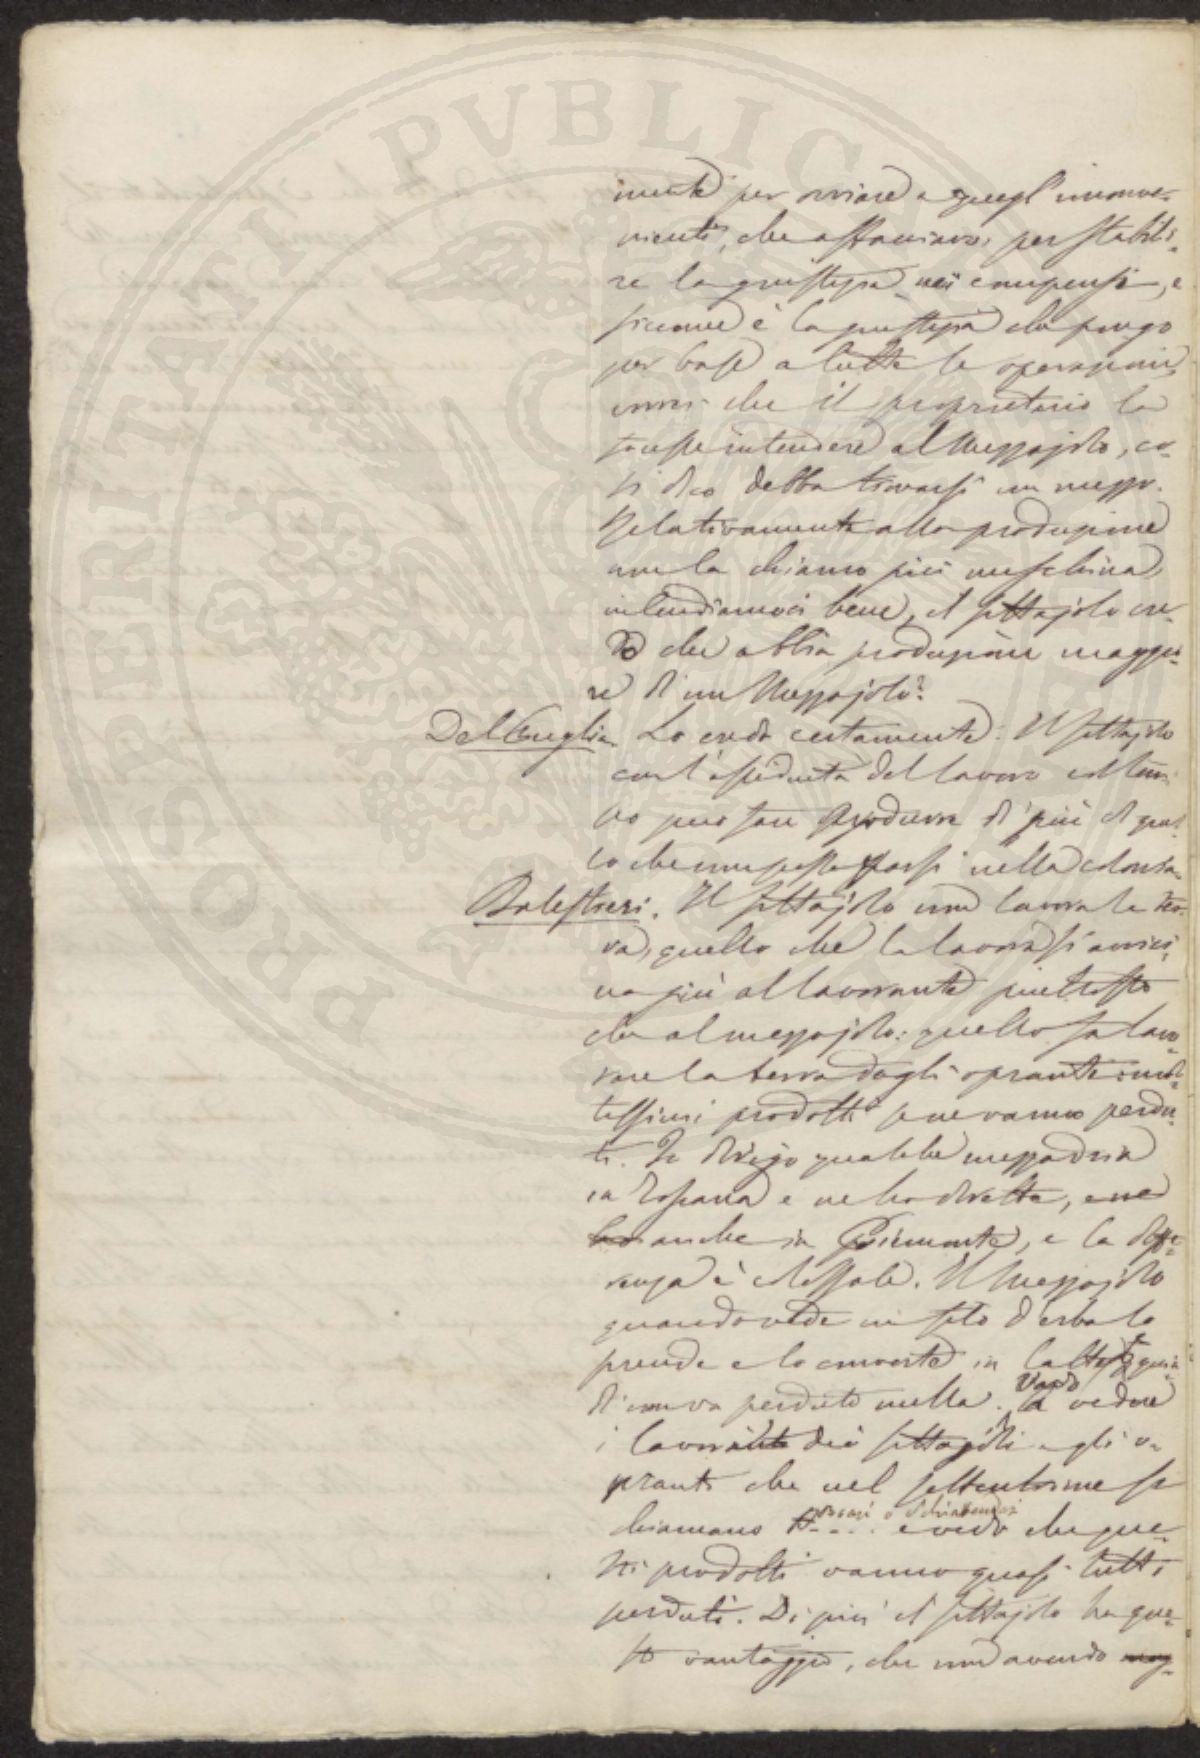 mente per ovviare a quegl'inconve-
nienti, che affacciavo, per stabili-
re la giustezza nei compensi, e
siccome è la giustezza che pongo
per base a tutte le operazioni,
vorrei che il proprietario la
facesse intendere al Mezzajolo, co-
sì dico debba trovarsi un mezzo.
Relativamente alla produzione
non la chiamo più meschina,
intendiamoci bene, il fittajolo cre-
do che abbia produzione maggio-
re di un Mezzajolo?
Del Puglia. Lo credo certamente: Il fittajolo
con l'assiduità del lavoro
può fare produrre di più di quel-
lo che non possa farsi nella colonia.
Balestrieri. Il fittajolo non lavora la ter-
ra, quello che la lavora si avvici-
na più al lavorante piuttosto
che al mezzajolo: quello fa lavo-
rare la terra dagli opranti: mol-
tissimi prodotti se ne vanno perdu-
ti. Io dirigo qualche mezzadria
in Toscana e ne ho dirette, e ne
ho anche in Piemonte, e la diffe-
renza è colossale. Il Mezzajolo
quando vede un filo d'erba lo
prende e lo converte in latte,
di non va perduto nulla. Vado a vedere
i lavori dei fittajoli e gli o-
pranti che nel settentrione si
chiamano .... e vedo che que-
sti prodotti vanno quasi tutti
perduti. Di più il fittajolo ha que-
sto vantaggio, che non avendo
POSPERITATI PVBLICAE